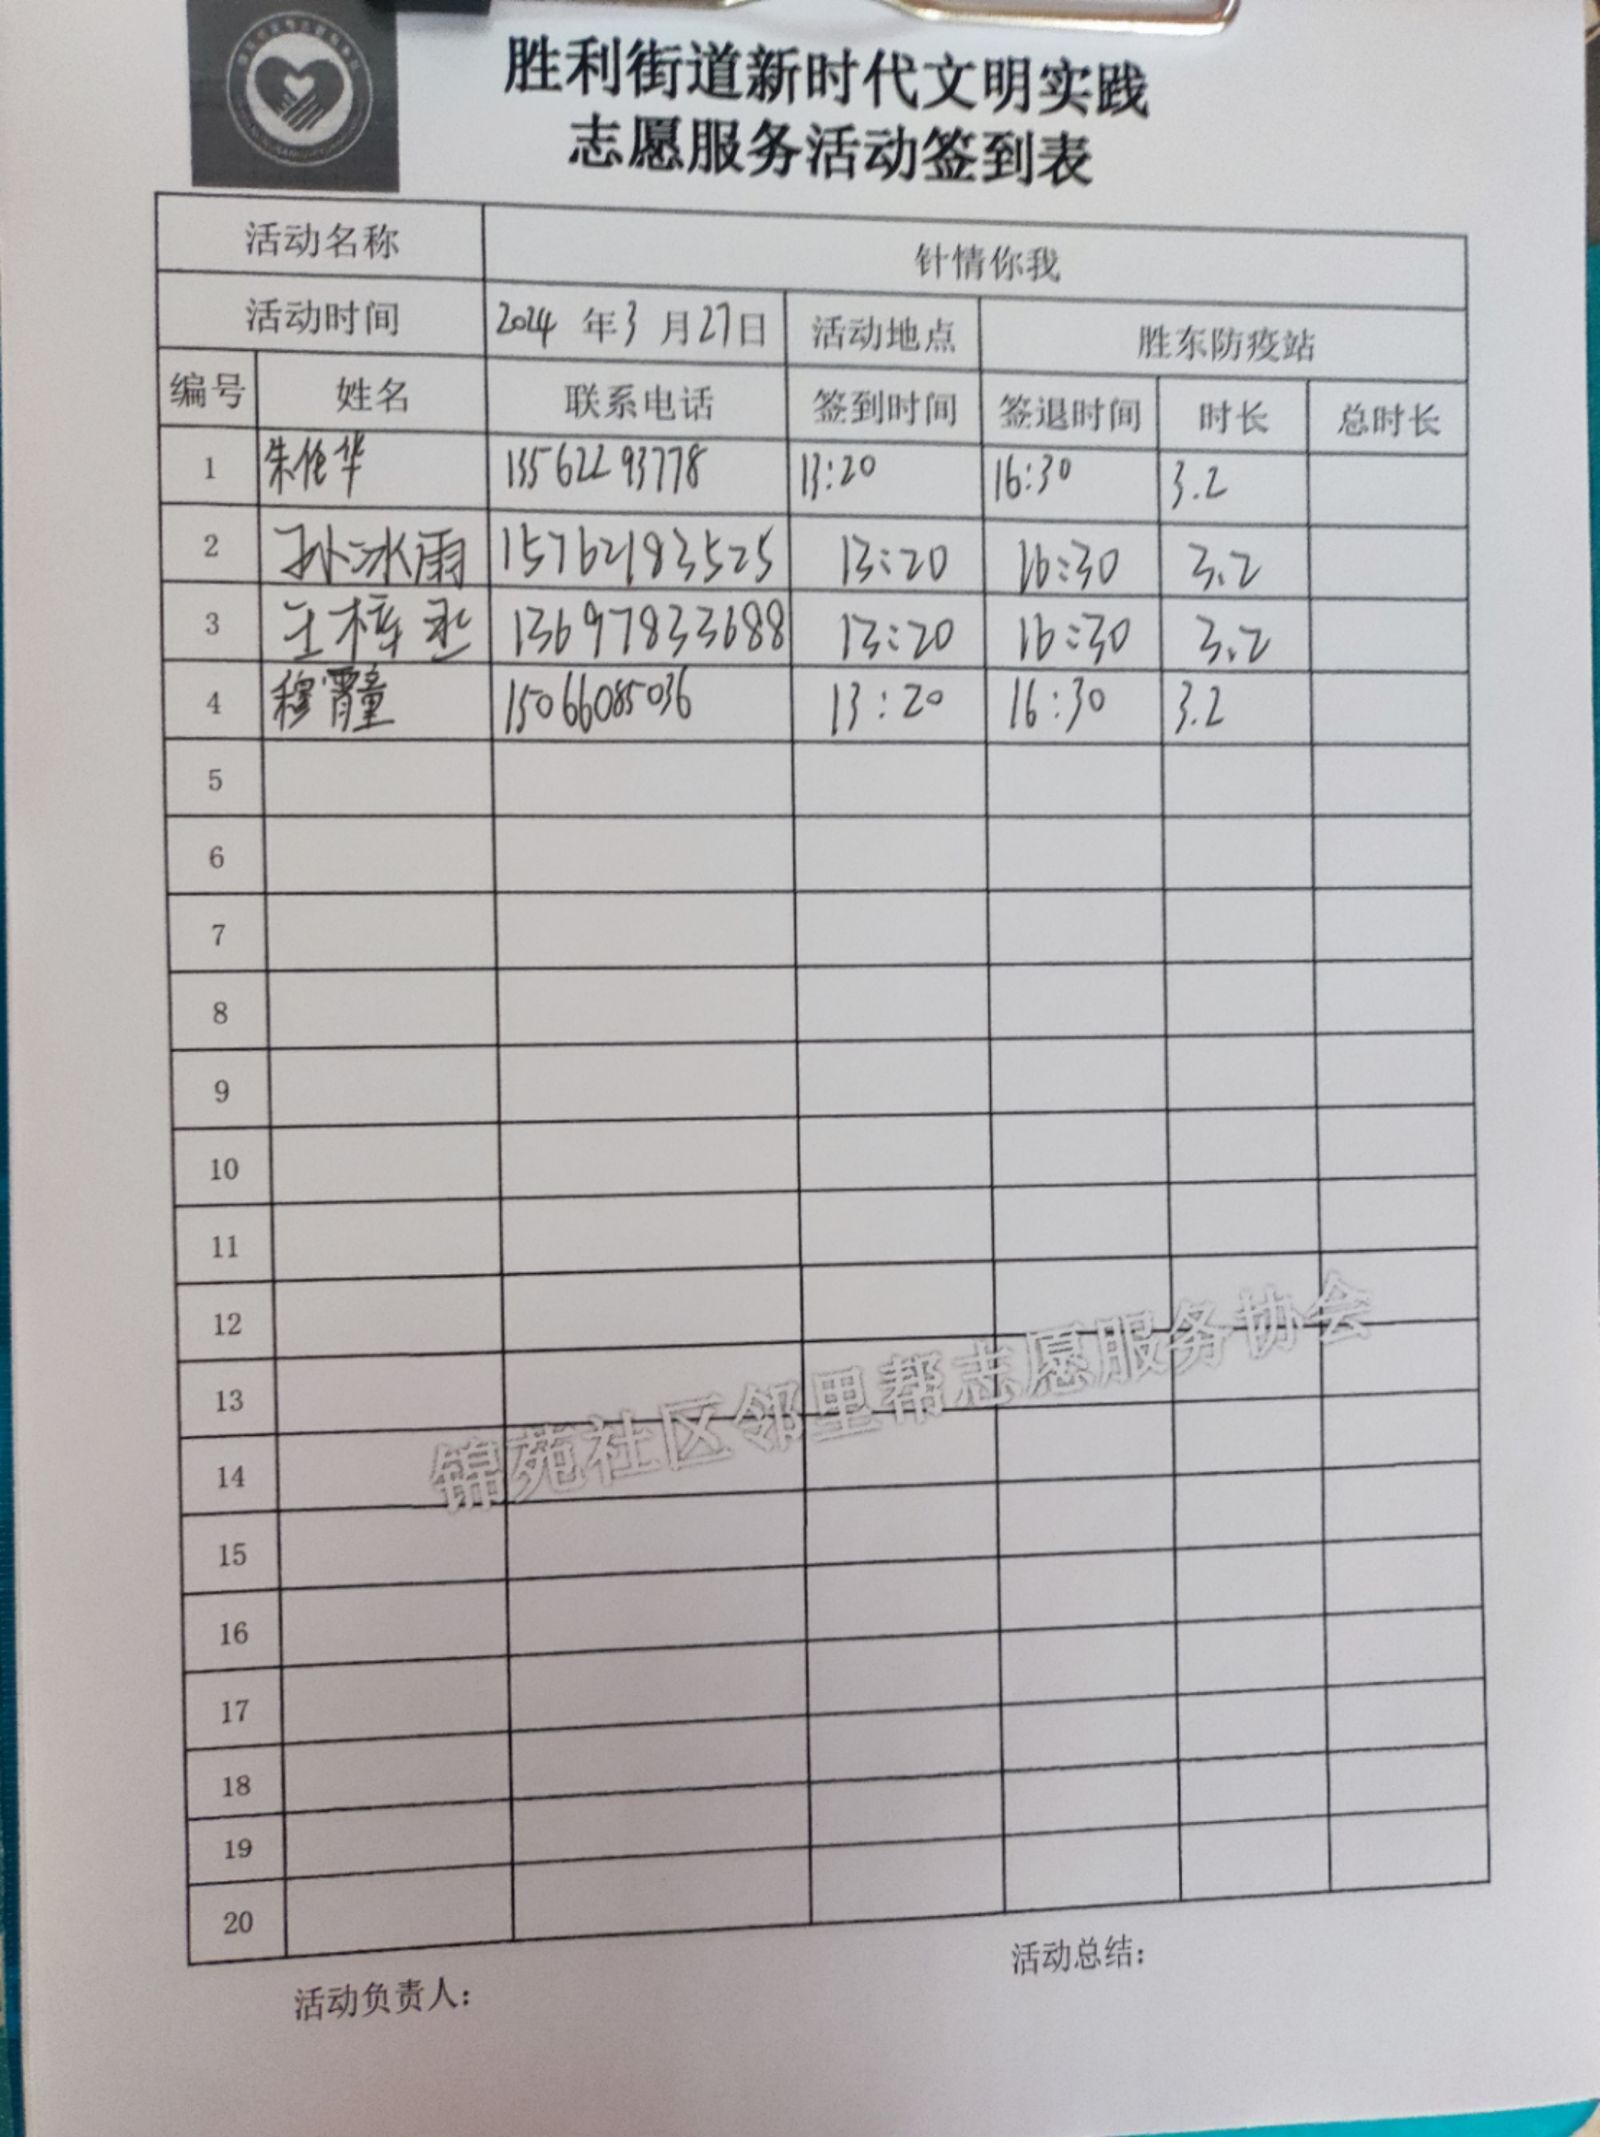 胜利街道新时代文明实践
志愿服务活动签到表
活动名称 针情你我
活动时间 2024 年 3 月 27 日 活动地点 胜东防疫站
编号 姓名 联系电话 签到时间 签退时间 时长 总时长
1 朱伦华 13562293778 13:20 16:30 3.2
2 孙冰雨 15762183525 13:20 16:30 3.2
3 王梓丞 13697833688 13:20 16:30 3.2
4 穆霄童 15066085036 13:20 16:30 3.2
5
6
7
8
9
10
11
12
13
14
15
16
17
18
19
20
锦苑社区邻里帮志愿服务协会
活动负责人：
活动总结：